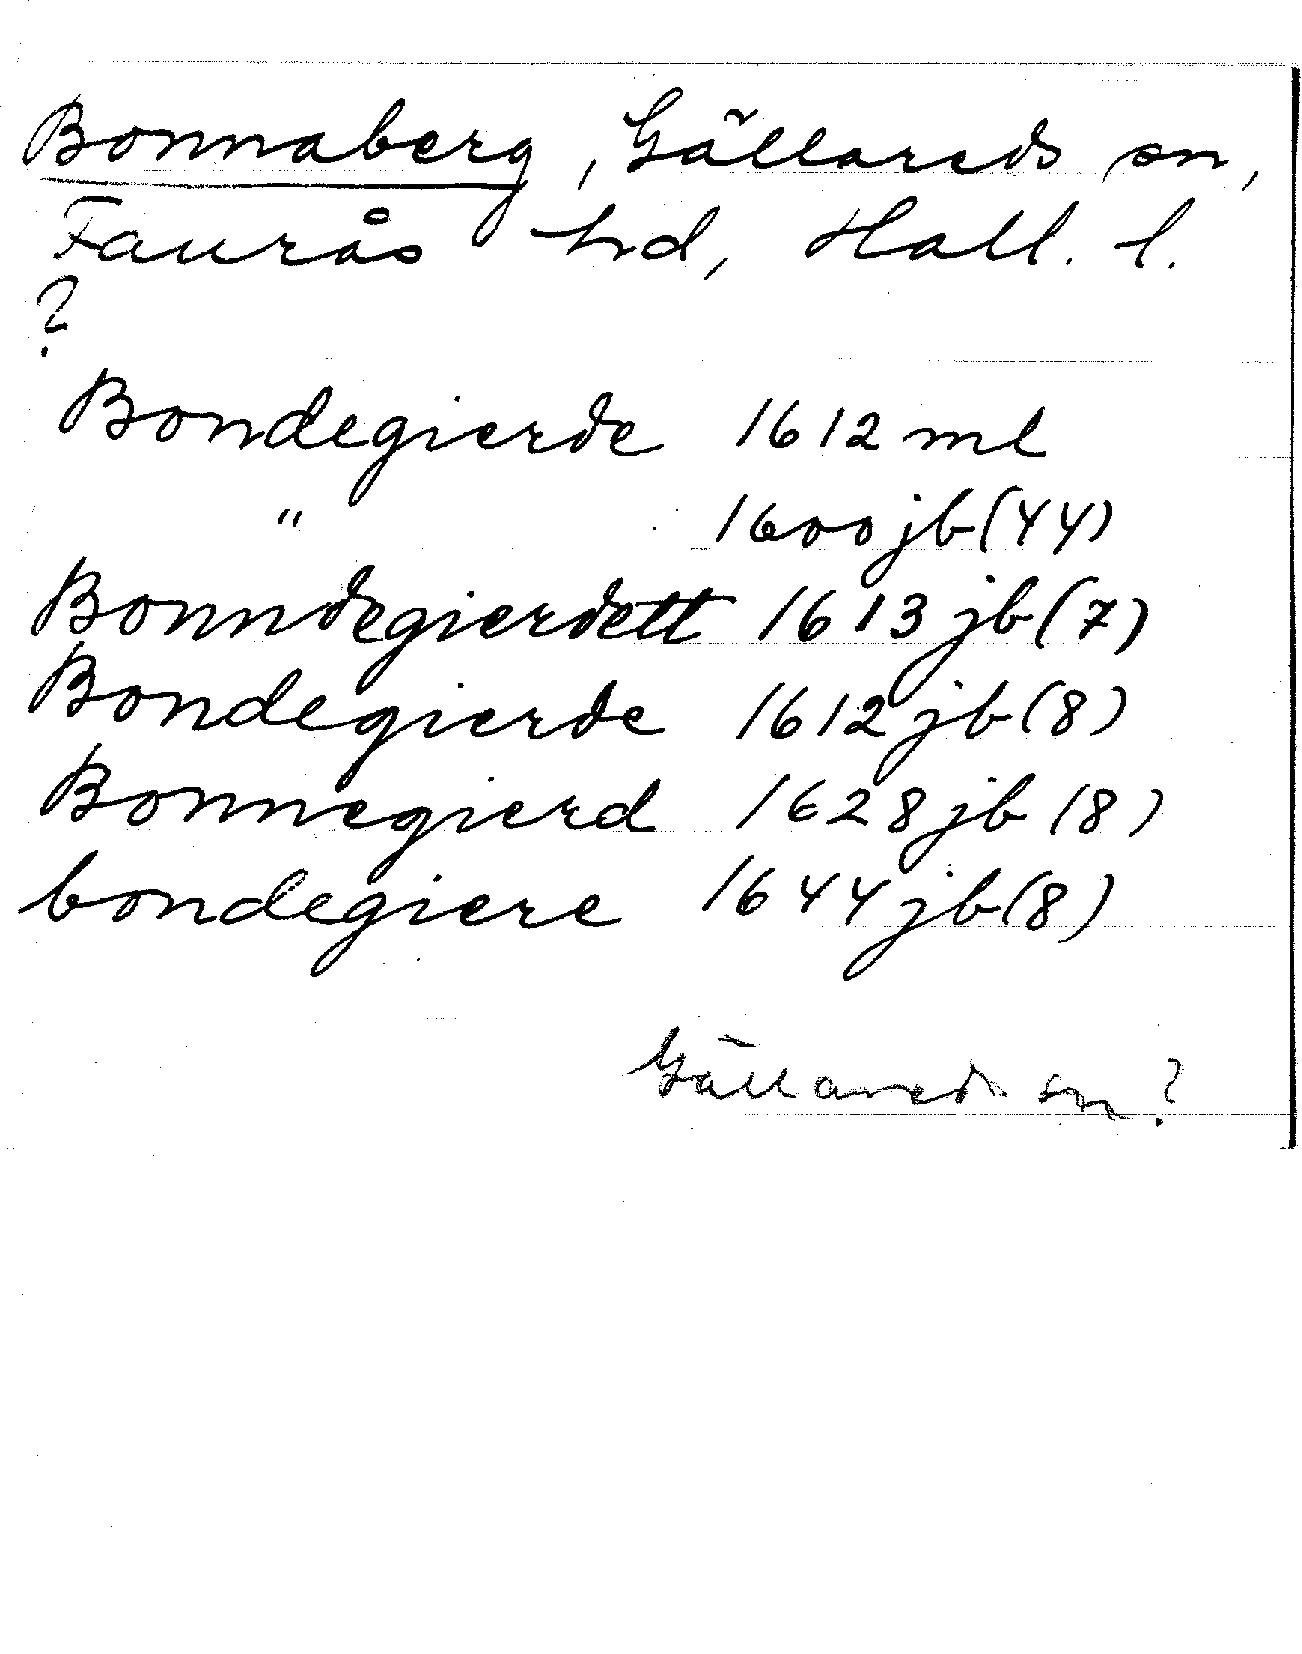 Bonnaberg, Gällareds sn,
Faurås hd, Hall. l.
?
Bondegierde 1612 ml
" 1600 jb (44)
Bonndegierdett 1613 jb (7)
Bondegierde 1612 jb (8)
Bonnegierd 1628 jb (8)
bondegiere 1644 jb (8)
Gällareds sn?